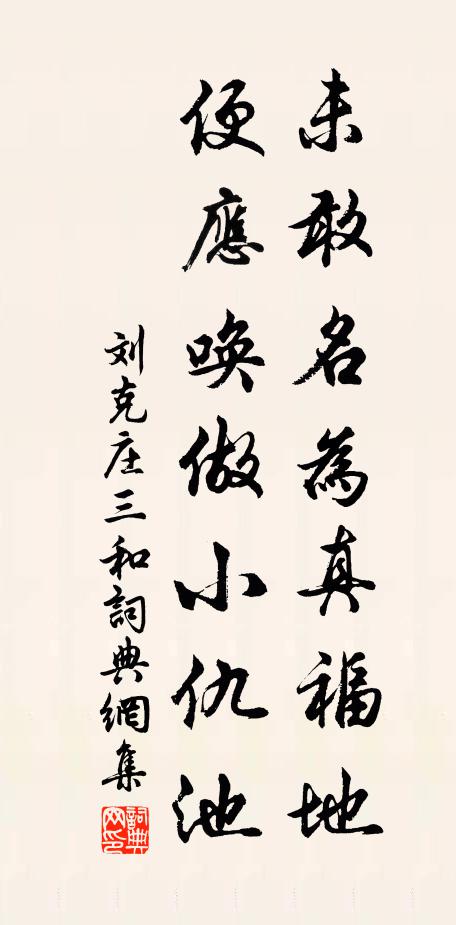 未敢名為真福地
便應唤做小仇池
刘克庄三和詞典網集
詞典網印